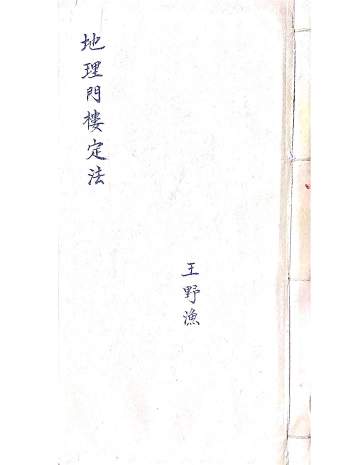 地理門樓定法
王野漁